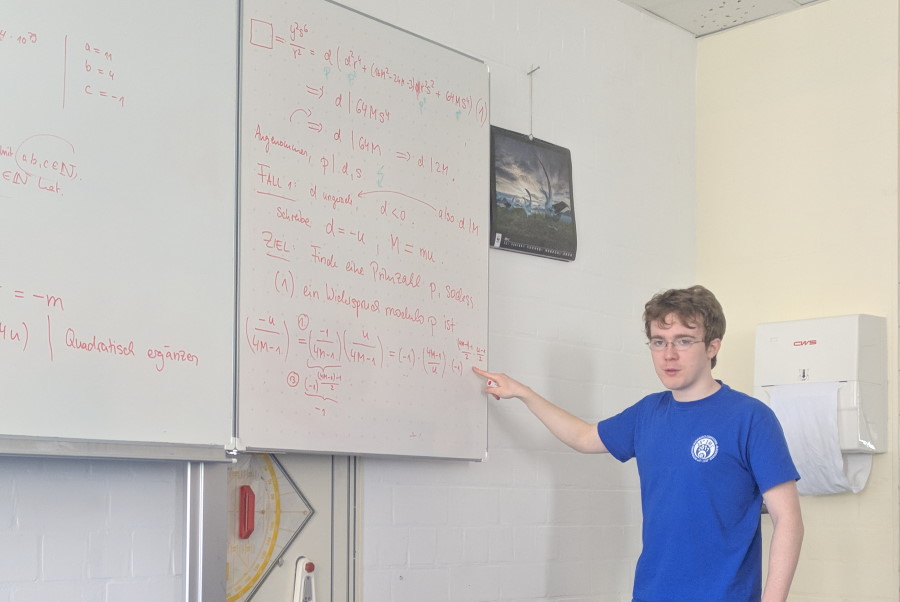 a = 11
b = 4
c = -1
mit a,b,c ∈ ℕ.
∈ ℕ hat.
= -m
4u) | Quadratisch ergänzen
□ = y²s⁶/r² = d (d²r⁴ + (16M²-24M-3)dr²s² + 64Ms⁴) (1)
⟹ d | 64Ms⁴
⟹ d | 64M ⟹ d | 2M.
Angenommen, p | d, s.
FALL 1: d ungerade, d < 0. also d | M
Schreibe d = -u ; M = mu.
ZIEL: Finde eine Primzahl p, sodass
(1) ein Widerspruch modulo p ist
(-u/4M-1) ① = (-1/4M-1) (u/4M-1) = (-1) · (4M-1/u) · (-1)
②
-1
CWS